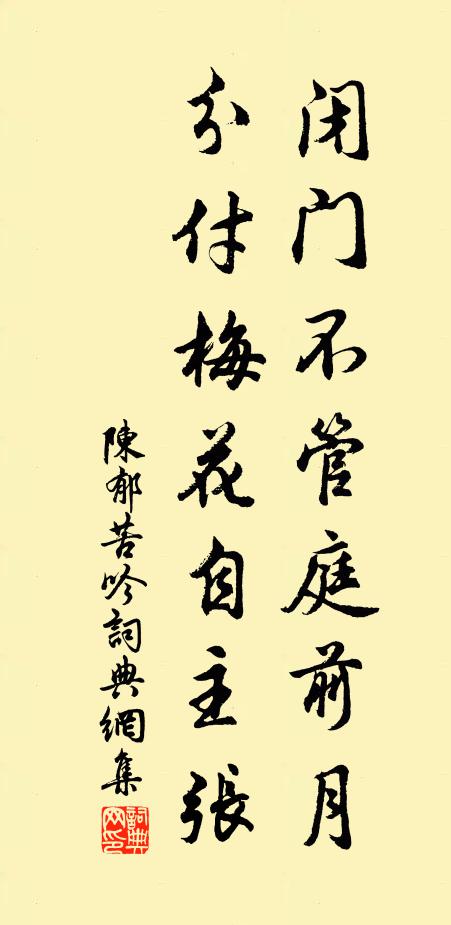 闭门不管庭前月
分付梅花自主張
陳郁苦吟詞典網集
詞典網印